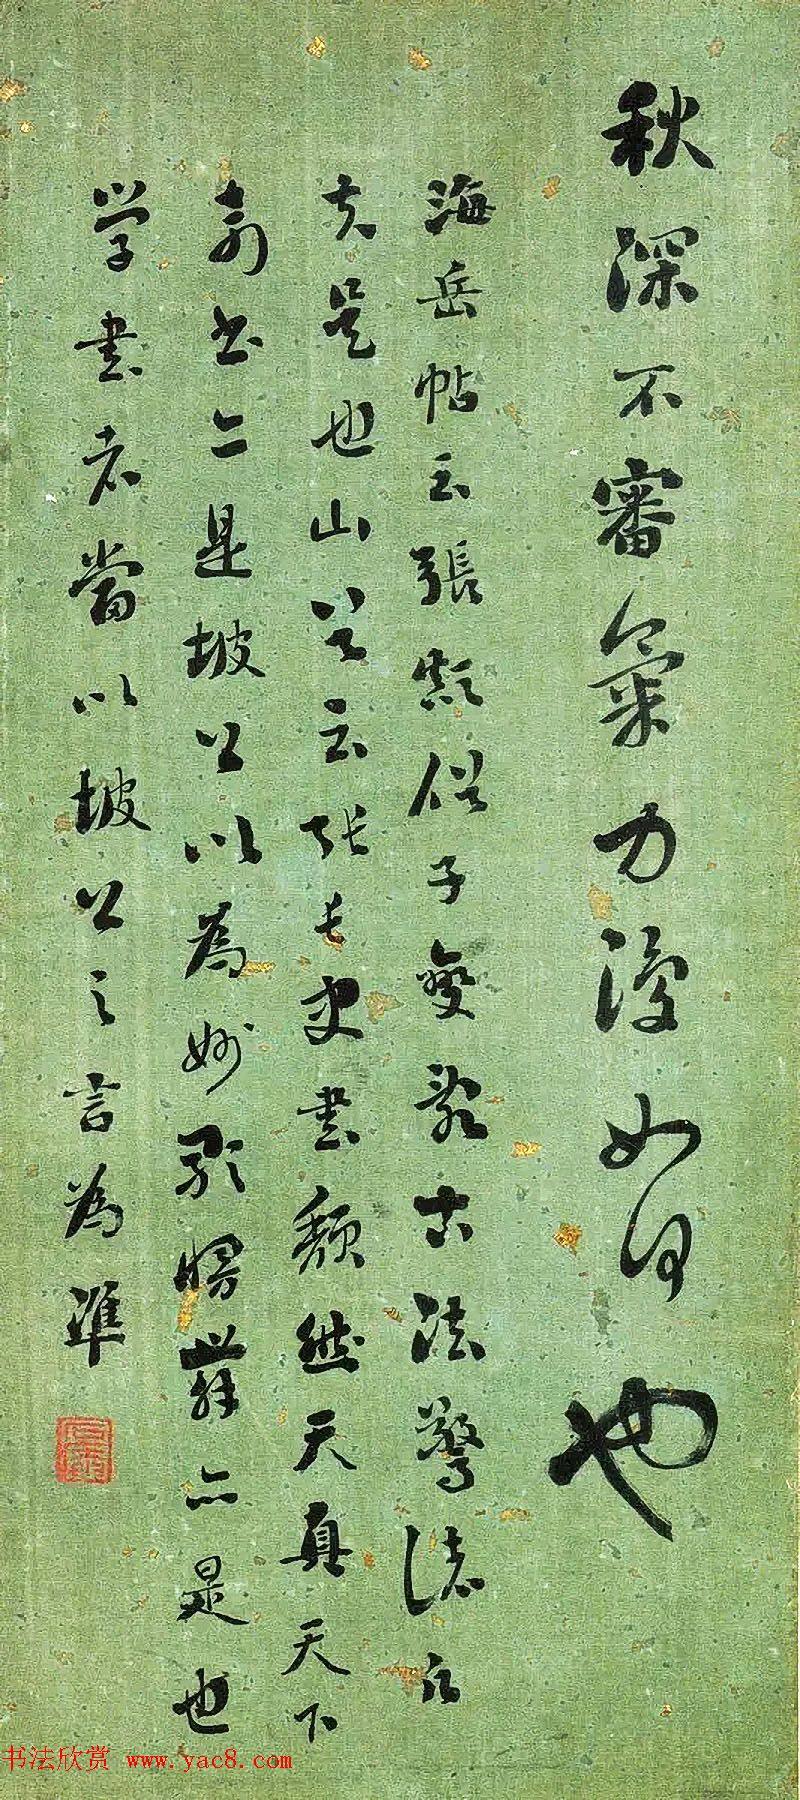 秋深不審氣力復如何也
海岳帖云張顛俗子變亂古法驚諸凡
夫是也山谷云張長史書頹然天真天下
奇書亦是坡公以為妙 亦是也
學書者當以坡公之言為準
书法欣赏 www.yac8.com